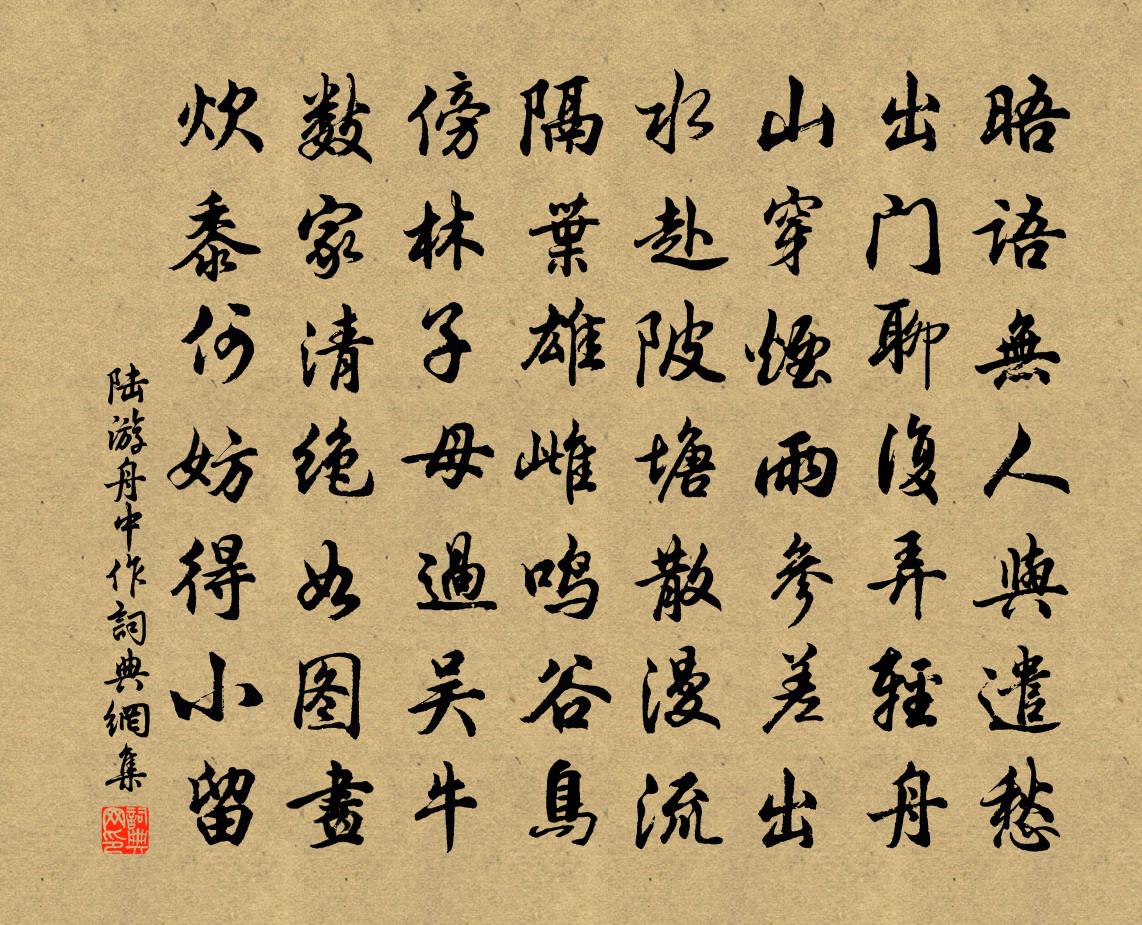 晤語無人與遣愁
出门聊復弄輕舟
山穿煙雨參差出
水赴陂塘散漫流
隔葉雄雌鸣谷鳥
傍林子母過吴牛
数家清绝如图畫
炊黍何妨得小留
陆游舟中作詞典網集
詞典网印